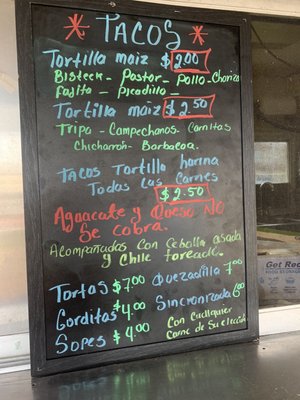 TACOS
Tortilla maiz $2.00
Bisteck - Pastor - Pollo - Chorizo
Fajita - Picadillo -
Tortilla maiz $2.50
Tripa - Campechanos - Carnitas
Chicharron - Barbacoa.
TACOS Tortilla harina
Todas Las Carnes
$2.50
Aguacate y Queso NO
Se Cobra.
Acompañadas Con Cebolla asada
y Chile toreado.
Tortas $7.00 Quezadilla 7.00
Gorditas $4.00 Sincronizada 6.00
Sopes $4.00 Con Cuallquier
Carne de Su elección
Get Rec